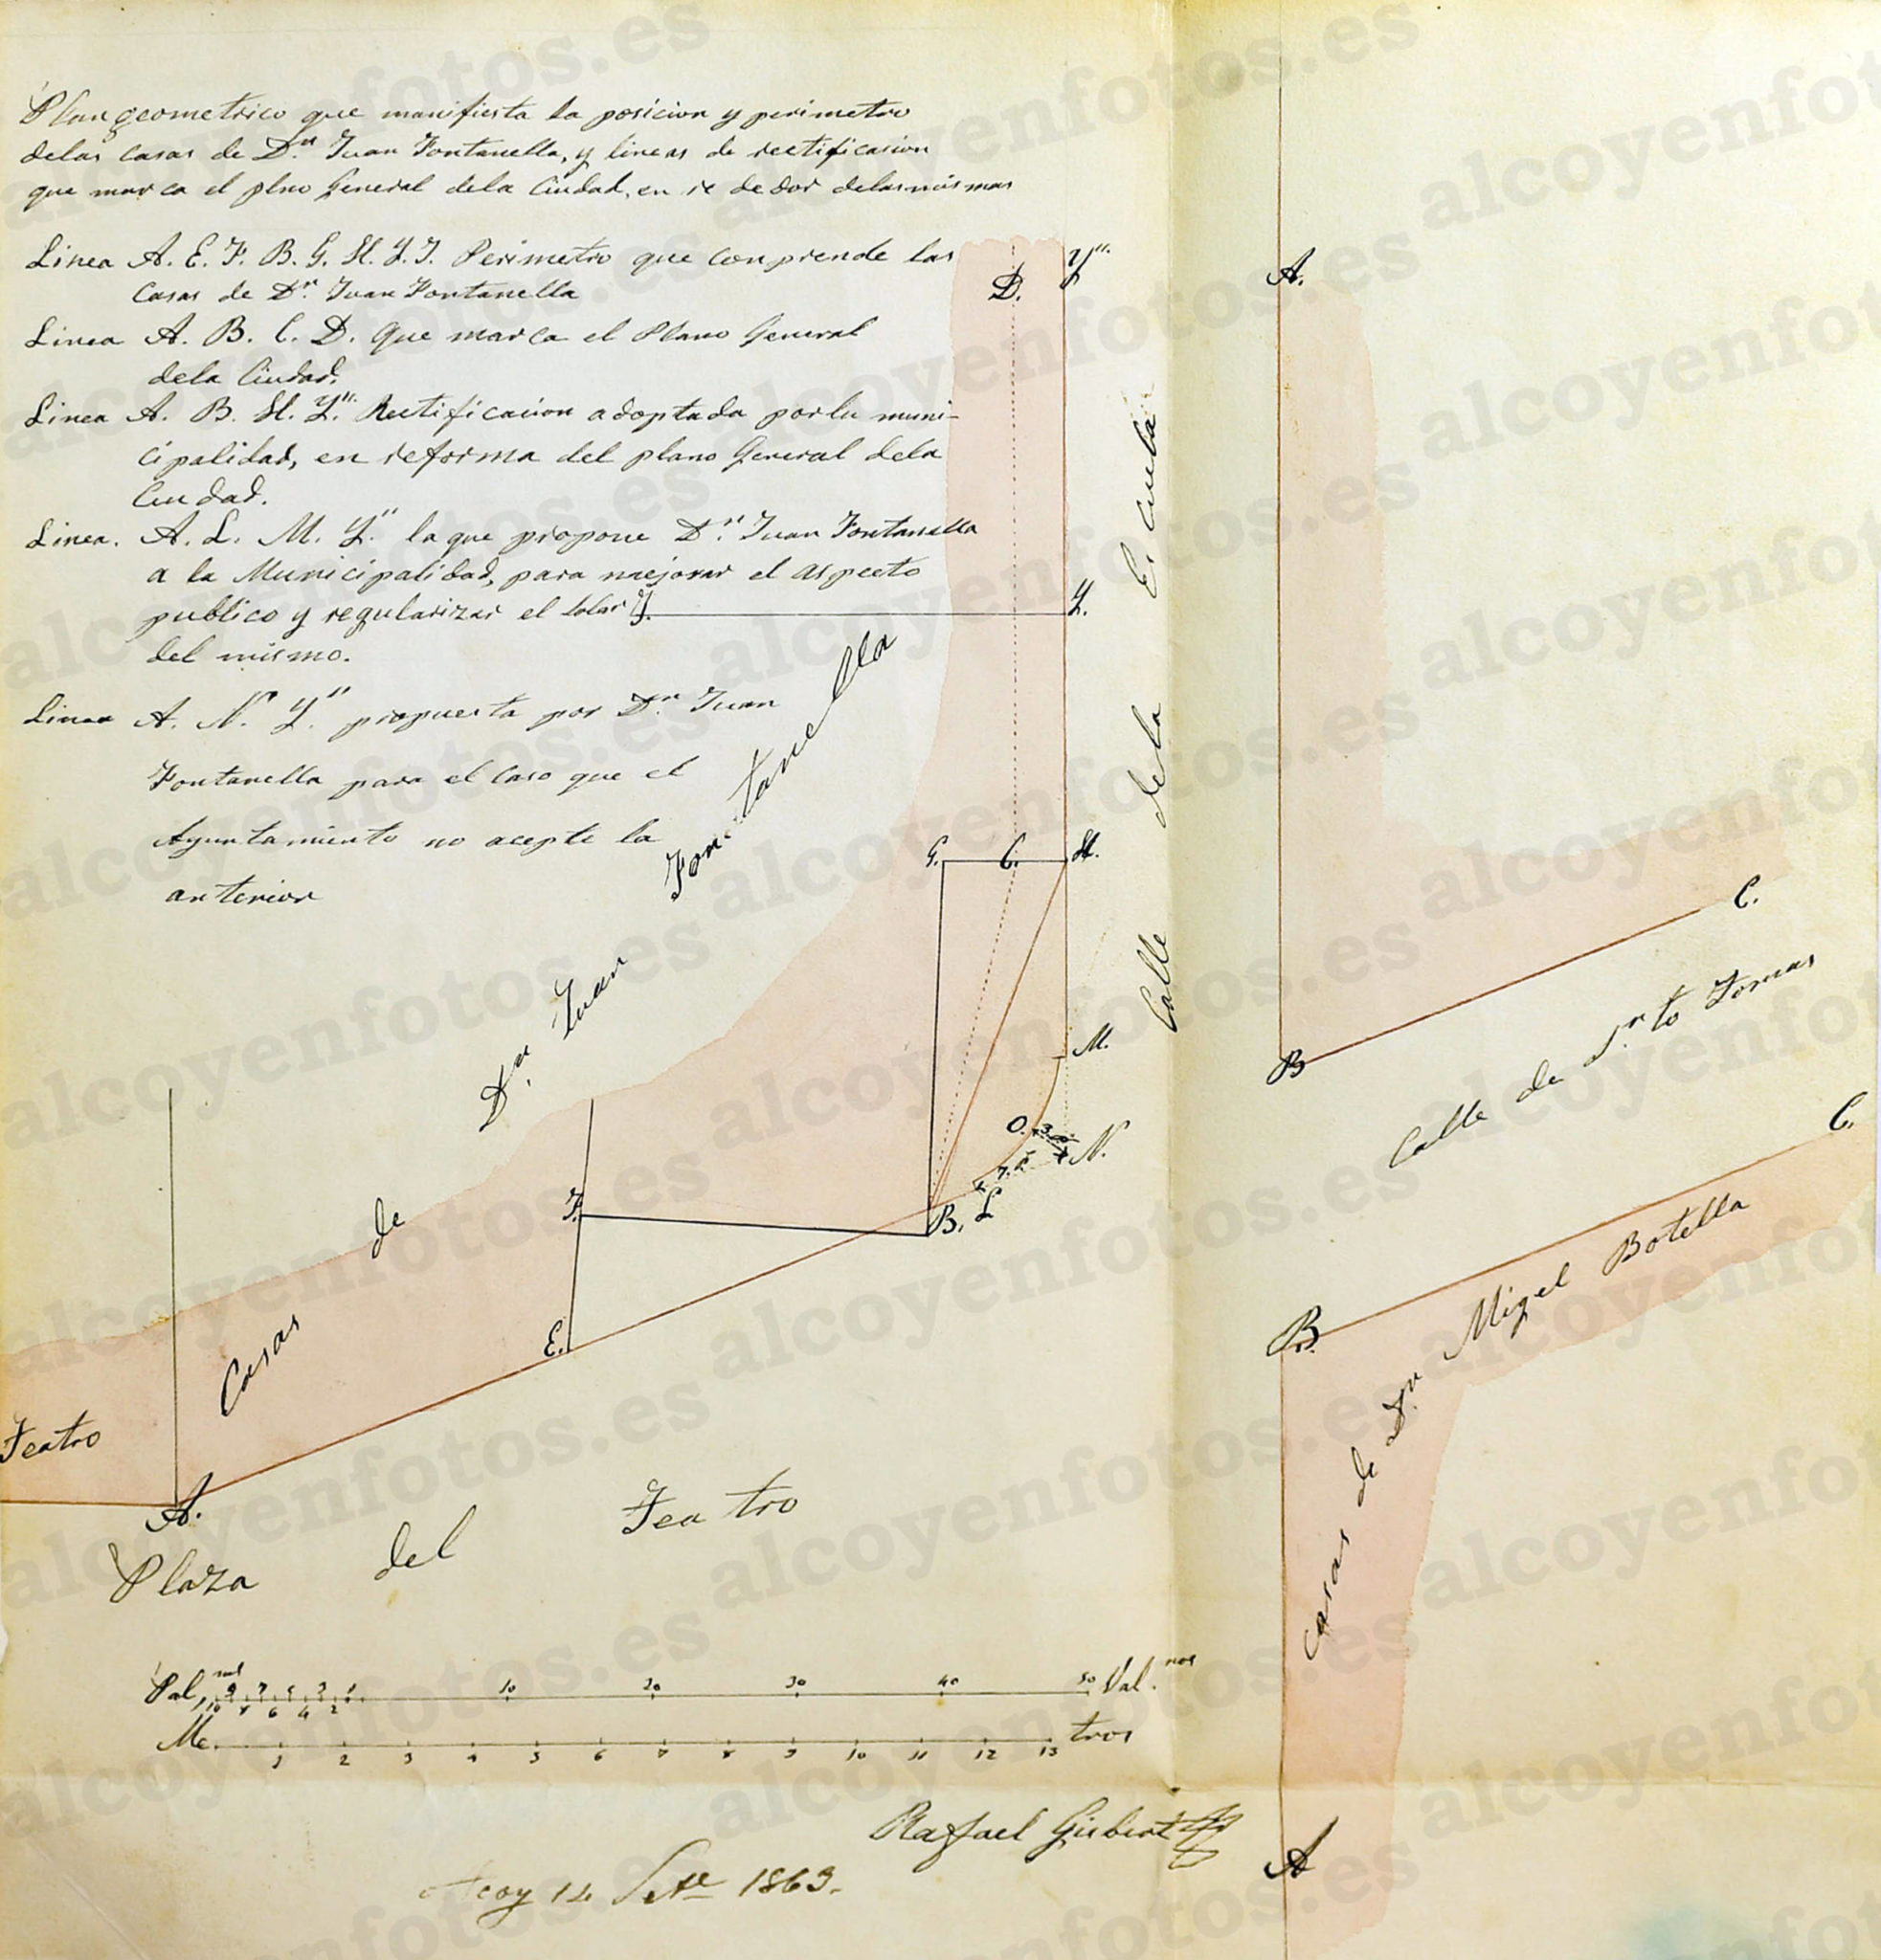 Plan geometrico que manifiesta la posicion y perimetro
delas casas de D.n Juan Fontanella, y lineas de rectificasion
que marca el plno General dela Ciudad, en re de dor delas mismas
Linea A. E. F. B. G. H. Y. J. Perimetro que conprende las
Casas de D.n Juan Fontanella
Linea A. B. C. D. Que marca el Plano General
dela Ciudad.
Linea A. B. H. Y.'' Rectificacion adoptada porla muni-
cipalidad, en reforma del plano General dela
Ciudad.
Linea. A. L. M. Y.'' la que propone D.n Juan Fontanella
a la Municipalidad, para mejorar el aspecto
publico y regularizar el solar
del mismo.
Linea A. N. Y.'' propuesta por D.n Juan
Fontanella para el caso que el
Ayuntamiento no acepte la
anterior
D.
Y''.
J.
Y.
G.
C.
H.
M.
O.
N.
L
B.
F.
E.
A.
Casas de D.n Juan Fontanella
Calle dela Escuela
Teatro
Plaza del Teatro
A.
B
C.
Calle de S.n to Tomas
C.
B.
Casas de D.n Migel Botella
A
Pal, mos 9 7 5 3 1 10 20 30 40 50 Val. nos
10 8 6 4 2
Me. tros
1 2 3 4 5 6 7 8 9 10 11 12 13
Rafael Gisbert
Alcoy 14 Set.re 1863.
alcoyenfotos.es